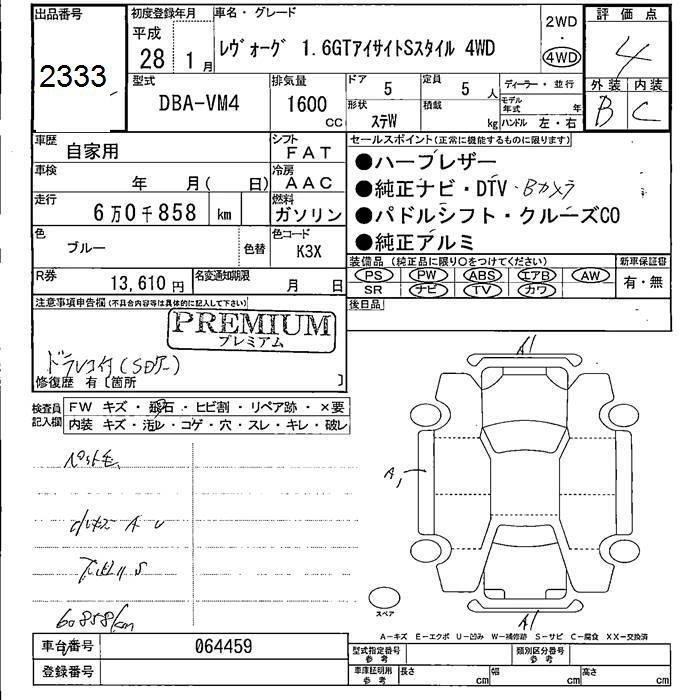 出品番号
2333
初度登録年月
平成
28年 1月
車名・グレード
ﾚｳﾞｫｰｸﾞ 1.6GTｱｲｻｲﾄSｽﾀｲﾙ 4WD
2WD
・
4WD
評価点
4
外装 内装
B C
型式
DBA-VM4
排気量
1600
CC
ドア
5
定員
5 人
形状
ｽﾃW
積載
kg
ディーラー・並行
モデル年式 年
ハンドル 左・右
車歴
自家用
シフト
FAT
車検
年 月( 日)
冷房
AAC
走行
6万0千858 km
燃料
ガソリン
色
ブルー
色替
色コード
K3X
R券
13,610円
名変通知期限
月 日
セールスポイント(正常に機能するものに限ります)
●ハーフレザー
●純正ナビ・DTV ・Bカメラ
●パドルシフト・クルーズCO
●純正アルミ
装備品 (純正品に限り○をつけてください)
PS PW ABS エアB AW
SR ナビ TV カワ
新車保証書
有・無
後日品
注意事項申告欄(不具合内容等は具体的に記入して下さい)
PREMIUM
プレミアム
修復歴 有〔箇所 〕
検査員
記入欄
FW キズ・飛石・ヒビ割・リペア跡・×要
内装 キズ・汚レ・コゲ・穴・スレ・キレ・破レ
60858km
A1
A1
A1
スペア
A-キズ E-エクボ U-凹み W-補修跡 S-サビ C-腐食 XX-交換済
車台番号
064459
登録番号
型式指定番号
参考
類別区分番号
参考
車庫証明用
参考
長さ cm
幅 cm
高さ cm